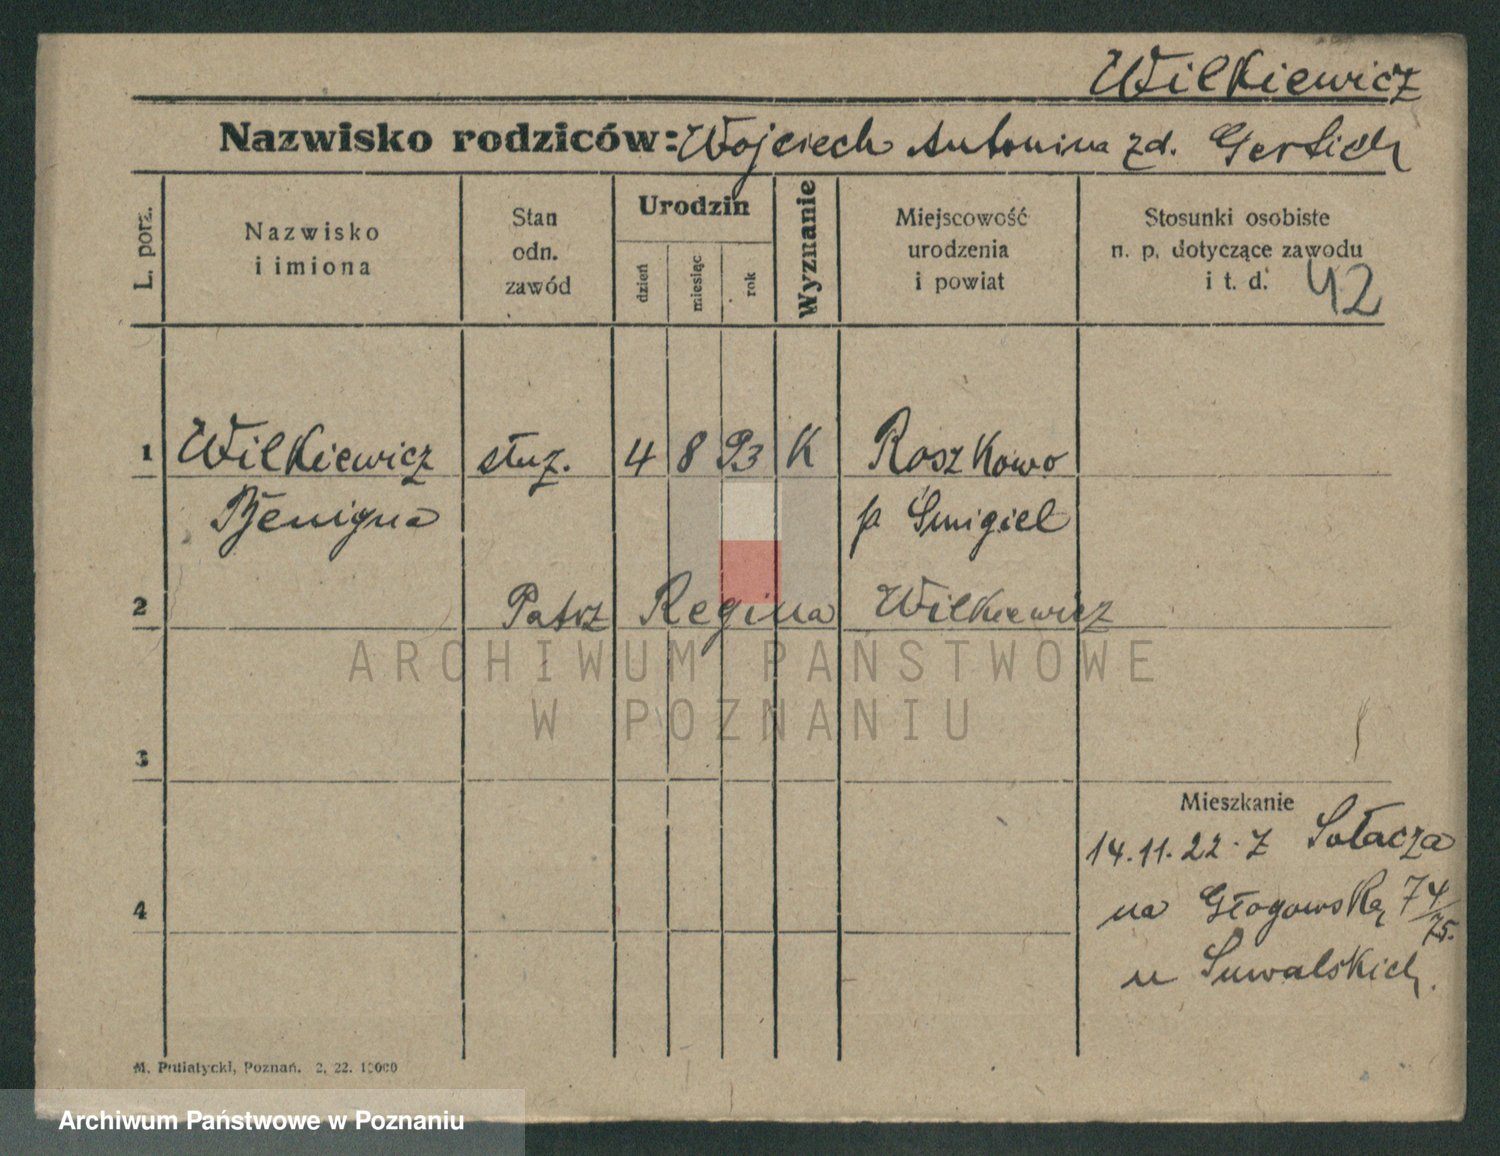 Wilkiewicz
Nazwisko rodziców: Wojciech Antonina zd. Gerlich
L. porz.
Nazwisko
i imiona
Stan
odn.
zawód
Urodzin
dzień
miesiąc
rok
Wyznanie
Miejscowość
urodzenia
i powiat
Stosunki osobiste
n. p. dotyczące zawodu
i t. d.
42
1 Wilkiewicz służ. 4 8 93 K Roszkowo
Benigna p Śmigiel
2 Patrz Regina Wilkiewicz
ARCHIWUM PAŃSTWOWE
W POZNANIU
3
Mieszkanie
14.11.22. z Sołacza
na Głogowską 74/75.
4
u Suwalskich.
M. Putiatycki, Poznań. 2, 22. 10000
Archiwum Państwowe w Poznaniu